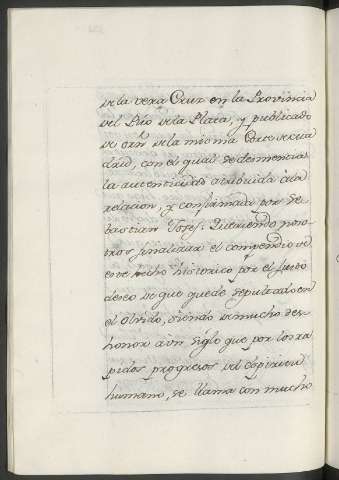 de la vera Cruz en la Provincia
del Rio de la Plata, y publicado
de orn de la misma Corte de Ma
drid, con el qual se desmentia
la autenticidad atribuida a la
relacion, y confirmada por Se
bastian Josef: Queriendo noso-
tros finalizar el compendio de
este hecho historico por el justo
deseo de que quede sepultado en
el olvido, siendo de mucho des
honor a un siglo que por los ra
pidos progresos del espiritu
humano, se llama con mucho